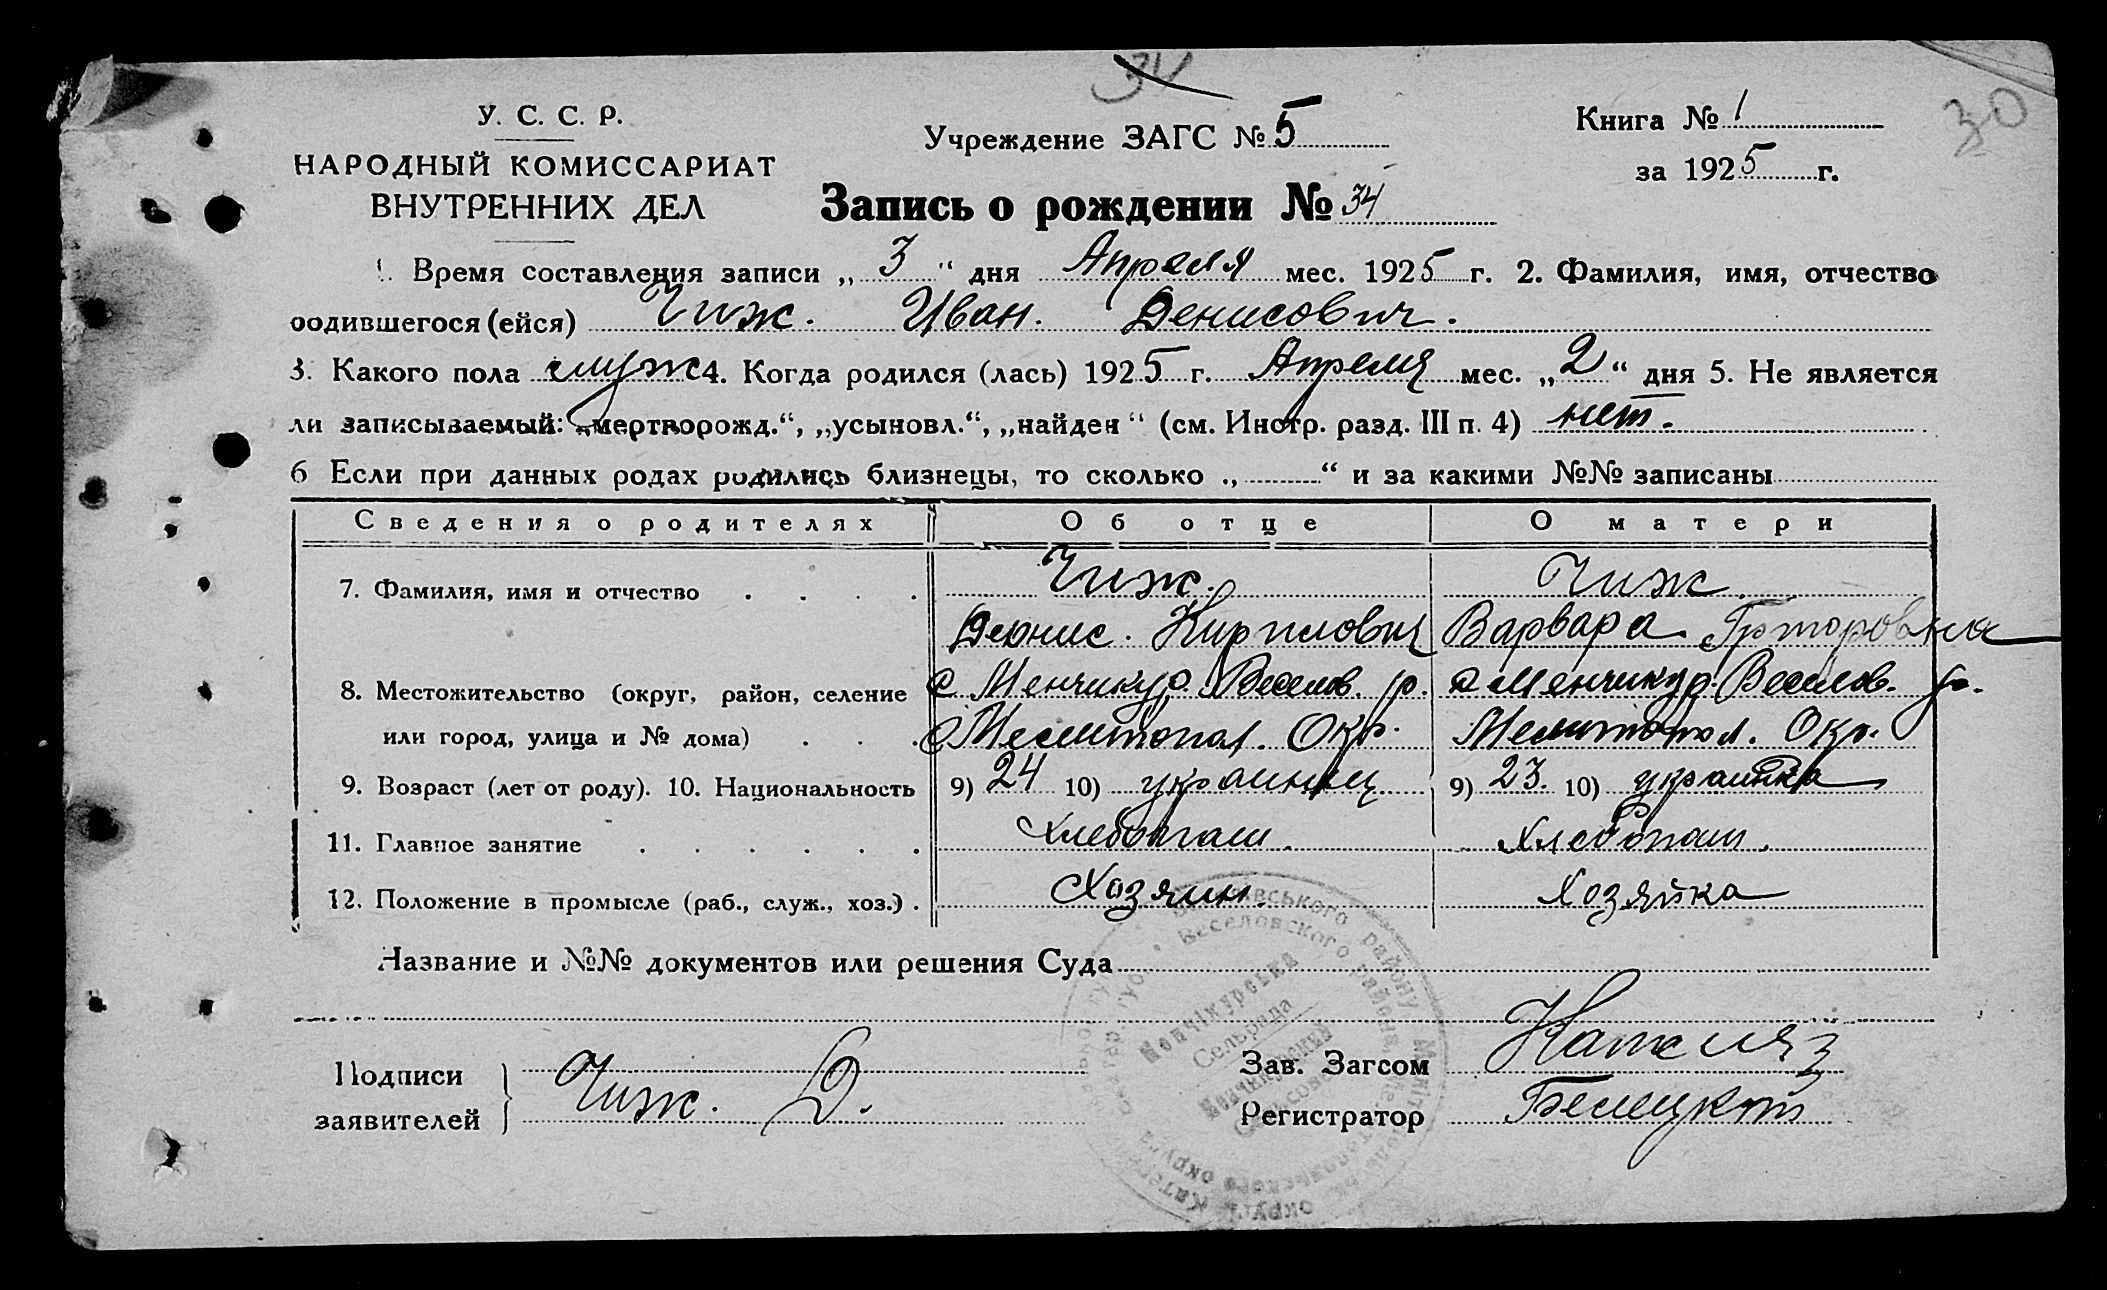 34
30
У. С. С. Р.
НАРОДНЫЙ КОМИССАРИАТ
ВНУТРЕННИХ ДЕЛ
Учреждение ЗАГС № 5
Книга № 1
за 1925 г.
Запись о рождении № 34
1. Время составления записи „ 3 “ дня Апреля мес. 1925 г. 2. Фамилия, имя, отчество
родившегося (ейся) Чиж. Иван. Денисович.
3. Какого пола муж 4. Когда родился (лась) 1925 г. Апреля мес. „ 2 “ дня 5. Не является
ли записываемый: „мертворожд.“, „усыновл.“, „найден“ (см. Инстр. разд. III п. 4) нет.
6 Если при данных родах родились близнецы, то сколько „ “ и за какими №№ записаны
Сведения о родителях Об отце О матери
7. Фамилия, имя и отчество Чиж. Чиж.
Денис. Кирилович Варвара
8. Местожительство (округ, район, селение с Менчикур. Веселов. р. с Менчикур. Веселов. р.
или город, улица и № дома) Мелитопол. Окр. Мелитопол. Окр.
9. Возраст (лет от роду). 10. Национальность 9) 24 10) украинец 9) 23. 10) украинка
11. Главное занятие Хлебопаш. Хлебопаш.
12. Положение в промысле (раб., служ., хоз.) Хозяин Хозяйка
Название и №№ документов или решения Суда
Подписи
заявителей Чиж. Д.
Зав. Загсом
Регистратор Белецкий
Веселовского района
Менчікурська
Сельрада